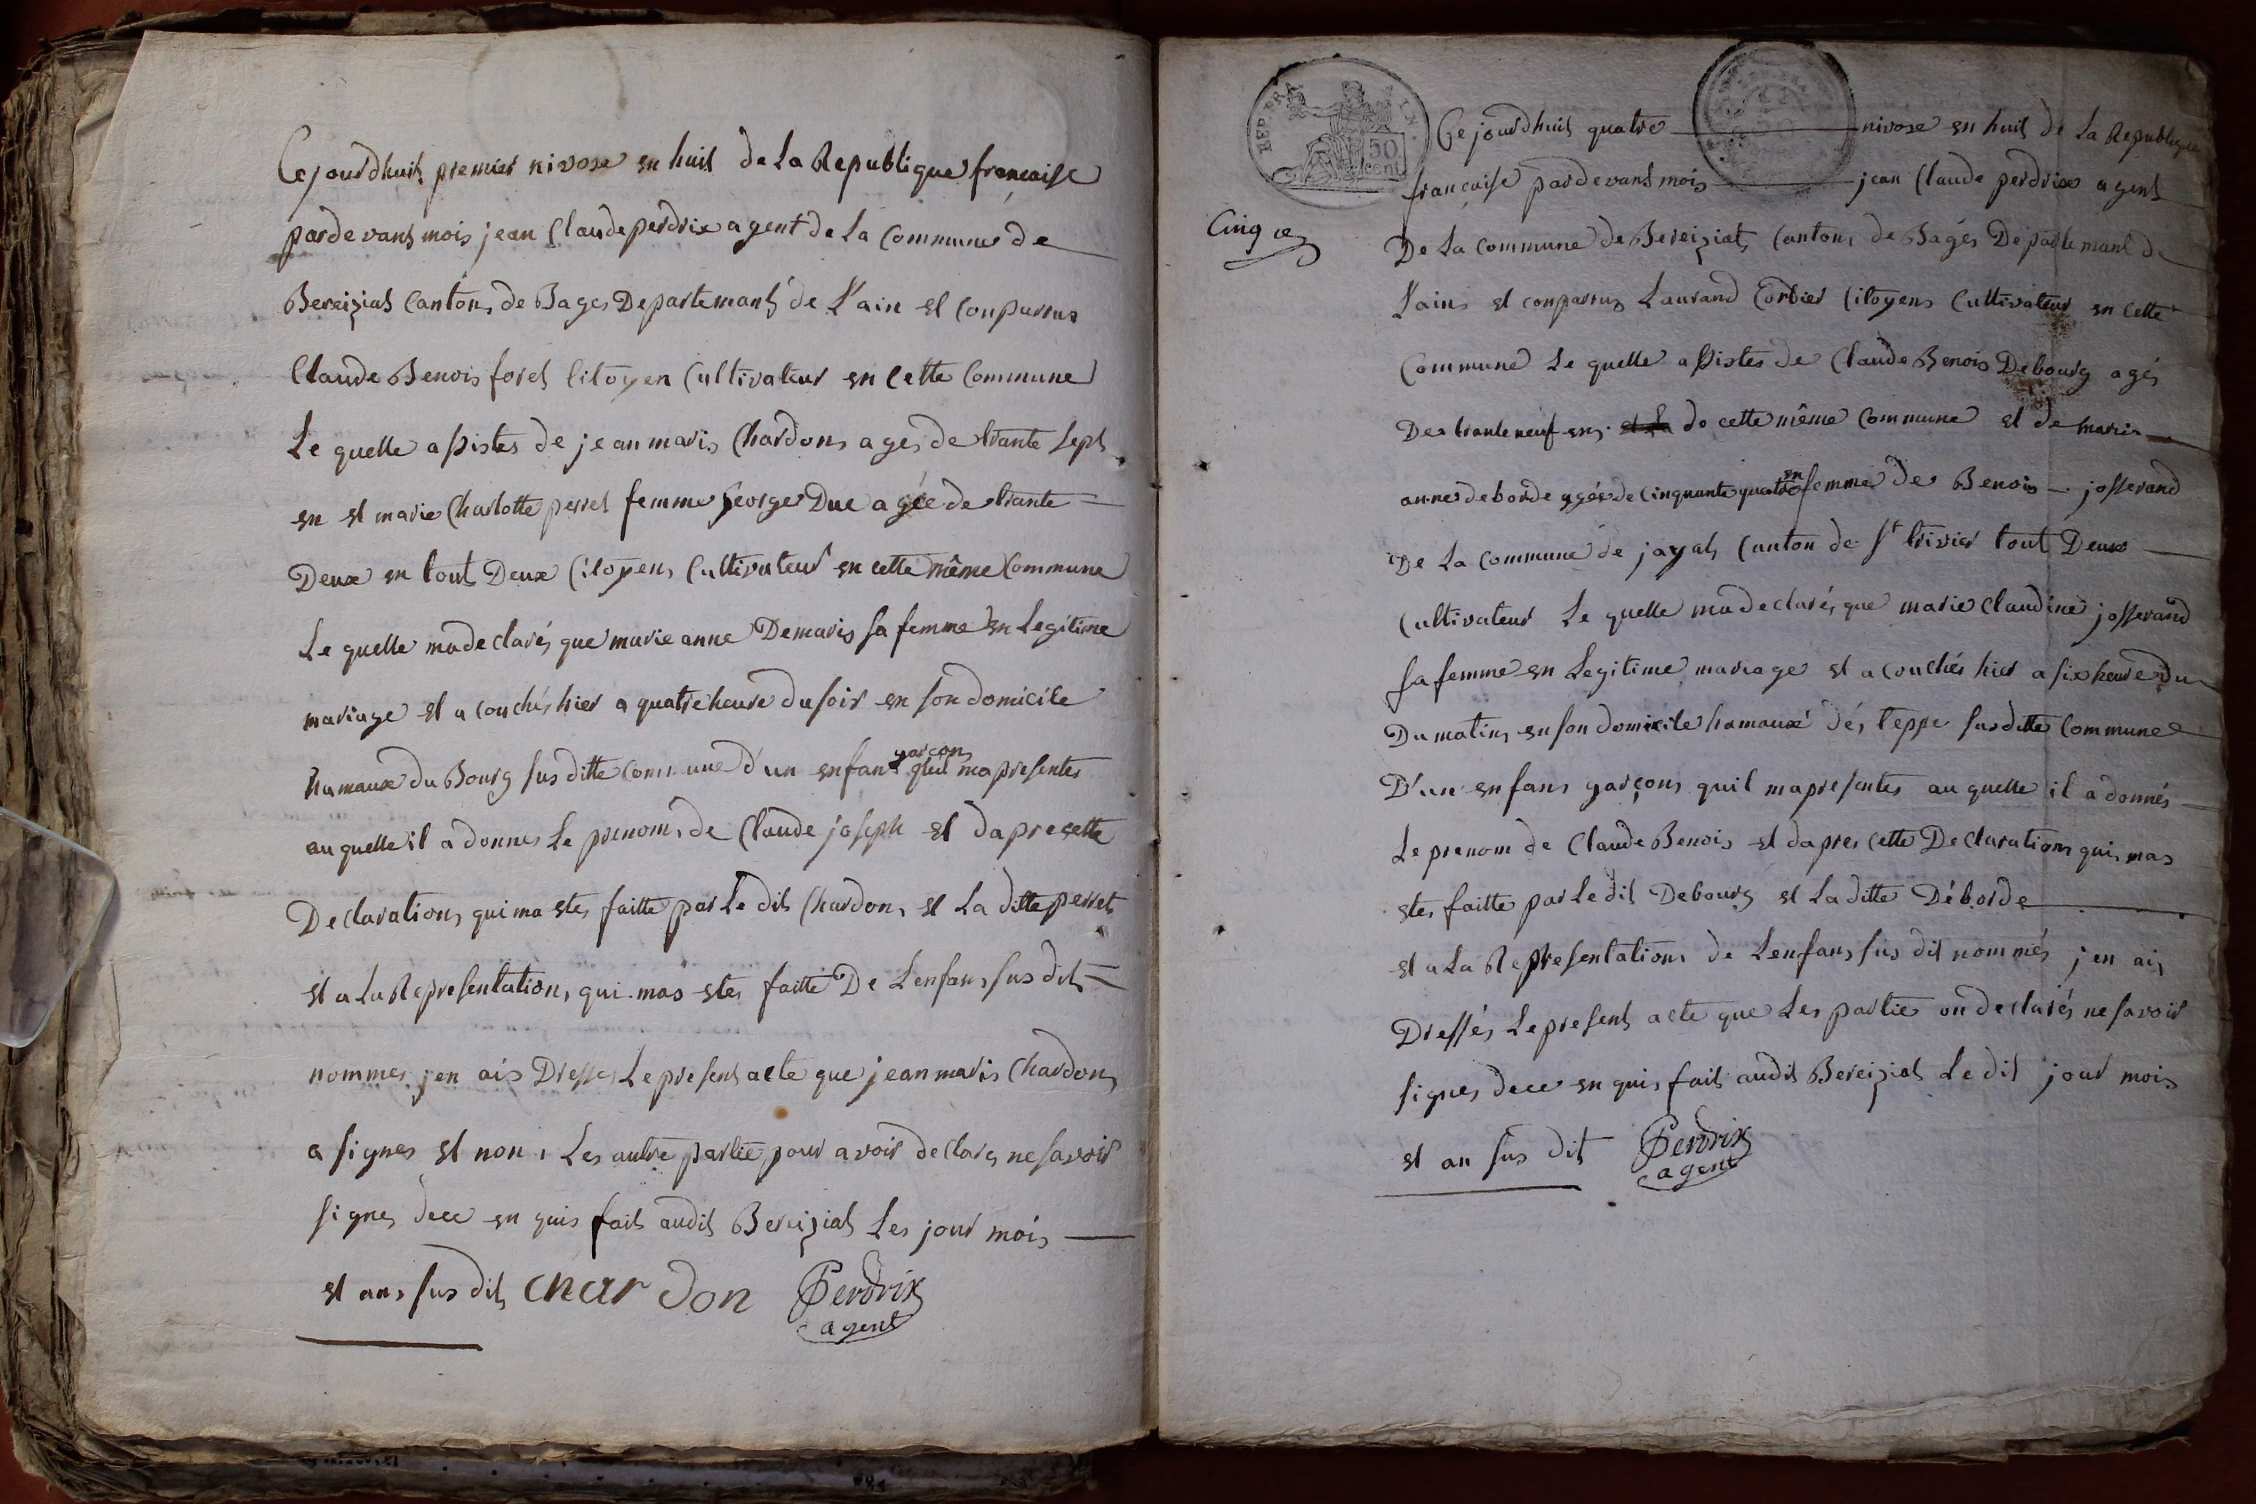 Cejourdhuit premier nivose en huit de La Republique francaise
pardevant mois jean Claude perdrix agent de La Commune de
Bereiziat Canton de Bages Departemant de L'ain et Conparrus
Claude Benois foret Citoyen Cultivateur en cette Commune
Le quelle assistes de jean maris Chardon ages de trante sept
en et marie Charlotte perret femme George Duc agée de trante
Deux en tout Deux Citoyen Cultivateur en cette même Commune
Le quelle ma declarés que marie anne Demaris sa femme en Legitime
mariage et a couchés hier a quatre heure du soir en son domicile
hamaux du Bourg sus ditte commune d'un enfant garcon qteil ma presentes
au quelle il a donnes Le prenom de Claude joseph et dapre cette
Declaration qui ma etes faitte par Le dit Chardon et La ditte perret
et a La Representation qui mas etes faitte De Lenfans sus dit
nommes jen ais Dresses Le present acte que jean maris Chardon
a signes et non Les autre partie pour avoir declares ne savoir
signes dece en quis fait audit Bereiziat Les jour mois
et ans sus dit chardon Perdrix
agent
REP. FRA
50
cent
Ce jourdhuit quatre nivose en huit de La Republique
française pardevant mois jean Claude perdrix agent
Cinq ce
De La Commune de Bereiziat Canton de Bagés Departemant de
L'ains et conparrus Laurand Corbier Citoyens Cultivateur en cette
Commune Le quelle assistes de Claude Benois Debourg agés
Des trante neuf ens de cette même Commune et de marie
anne deborde agés de Cinquante quatre en femme de Benois josserand
De La Commune de jayat Canton de St trivier tout Deux
Cultivateur Le quelle ma declarés que marie Claudine josserand
sa femme en Legitime mariage et a couchés hier a six heure du
Du matin en son domicile hamaux dés teppe sus ditte Commune
D'un enfans garçons quil ma presentes au quelle il a donnés
Le prenom de Claude Benois et dapres cette Declaration qui mas
etes faitte par Le dit Debourg et La ditte Déborde
et a La Representation de Lenfans sus dit nommés jen ais
Dressés Le present acte que Les partie on declarés ne savoir
signes dece en quis fait audit Bereiziat Le dit jour mois
et an sus dit Perdrix
agent